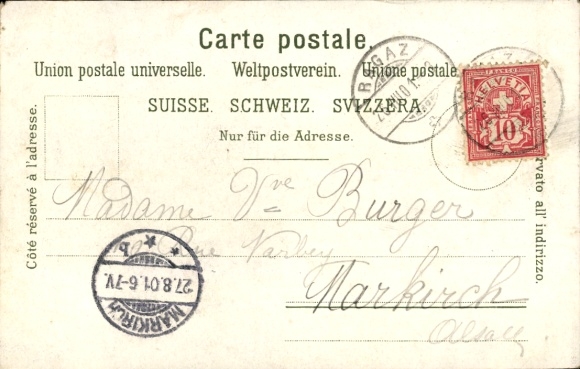 Carte postale.
Union postale universelle. Weltpostverein. Unione postale
SUISSE. SCHWEIZ. SVIZZERA.
Nur für die Adresse.
Côté réservé à l'adresse.
RAGAZ
HELVETIA
10
Madame Vve Burger
Rue
Markirch
Alsace
MARKIRCH
27.8.01.6-7V.
b
all' indirizzo.